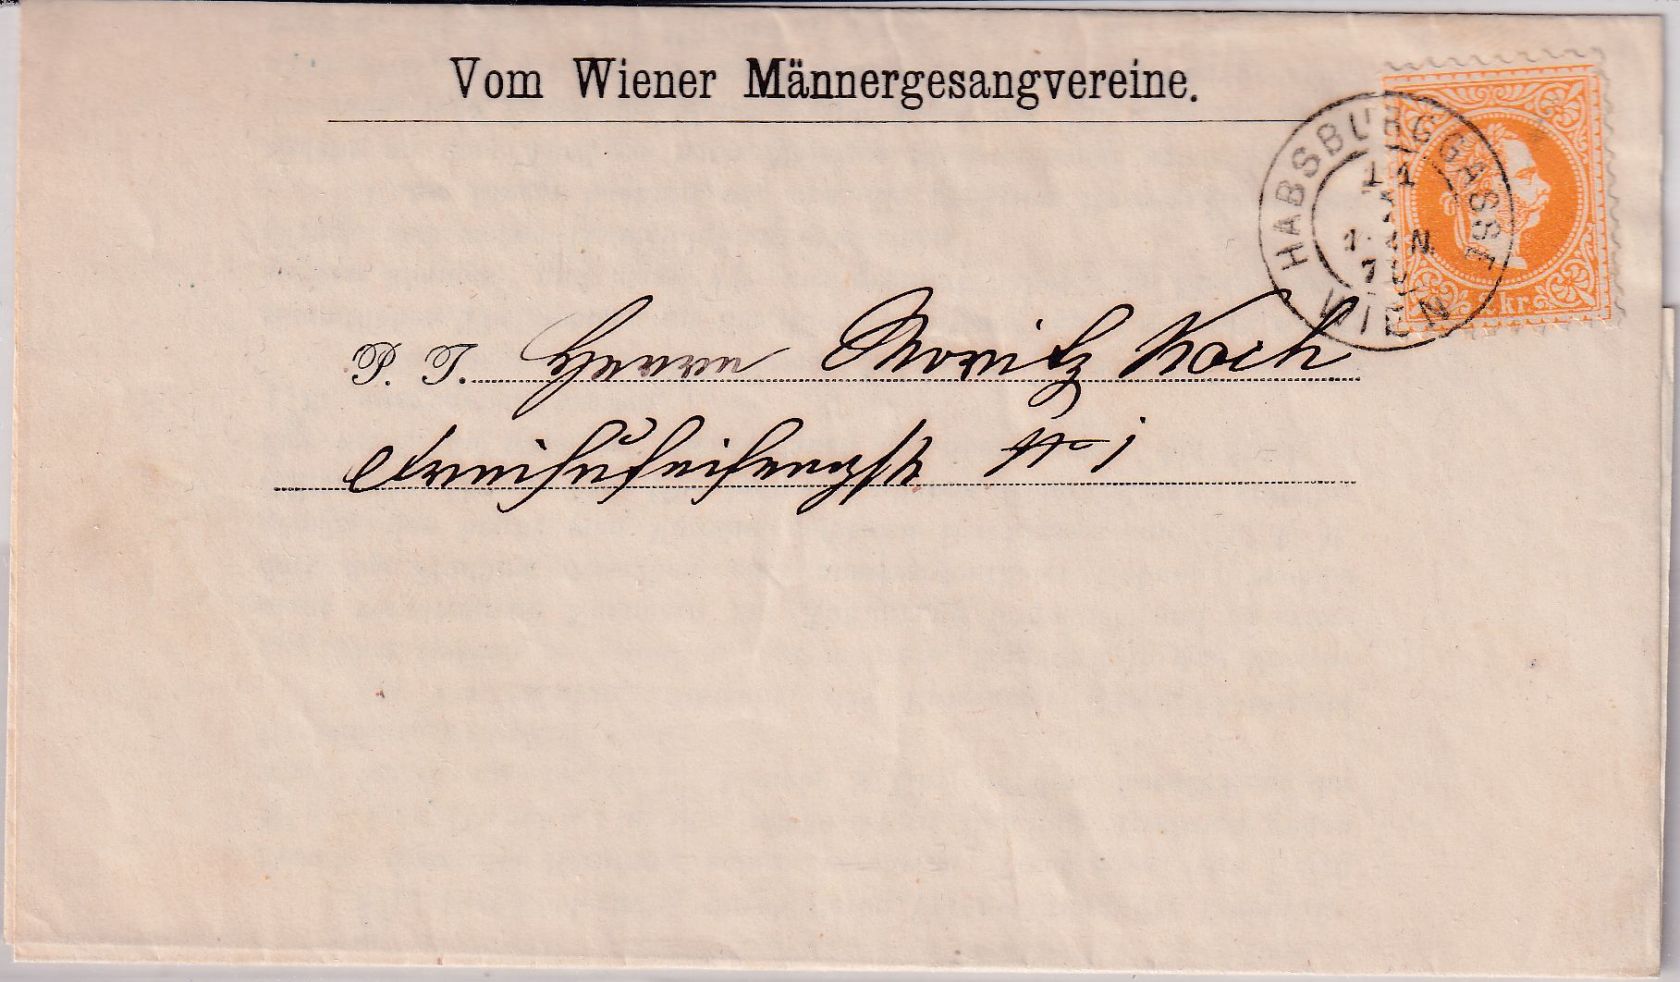 Vom Wiener Männergesangvereine.
HABSBURGGASSE
WIEN
2 kr.
P. T. Herrn Moritz Koch
№ 1